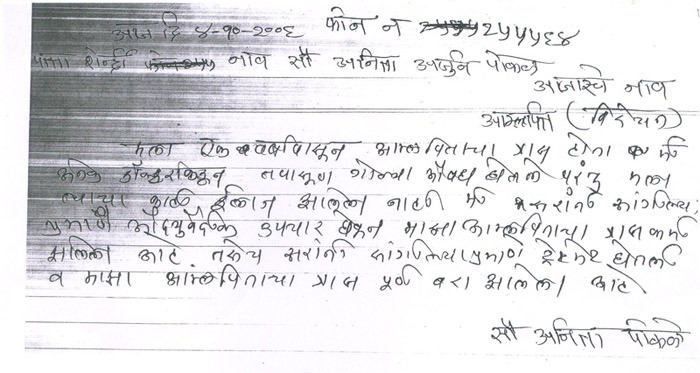 आज दि ४-१०-२००६ फोन न २५५५६४
पत्ता शेन्द्री नाव सौ अनिता अर्जुन पोकळे
आजाराचे नाव
आम्लपित्त (विरेचन)
मला एक वर्षापासून आम्लपित्ताचा त्रास होता व मी
अनेक डॉक्टरकडून तपासून गोळ्या औषध घेतले परंतु मला
त्याचा काही ईलाज झालेला नाही मी सरांनी सांगितल्या
प्रमाणे आर्युवेदिक उपचार घेऊन माझा आम्लपित्ताचा त्रास कमी
झालेला आहे तसेच सरांनी सांगितल्याप्रमाणे ट्रेटमेंट घेतली
व माझा आम्लपित्ताचा त्रास पूर्ण बरा झालेला आहे
सौ अनिता पोकळे